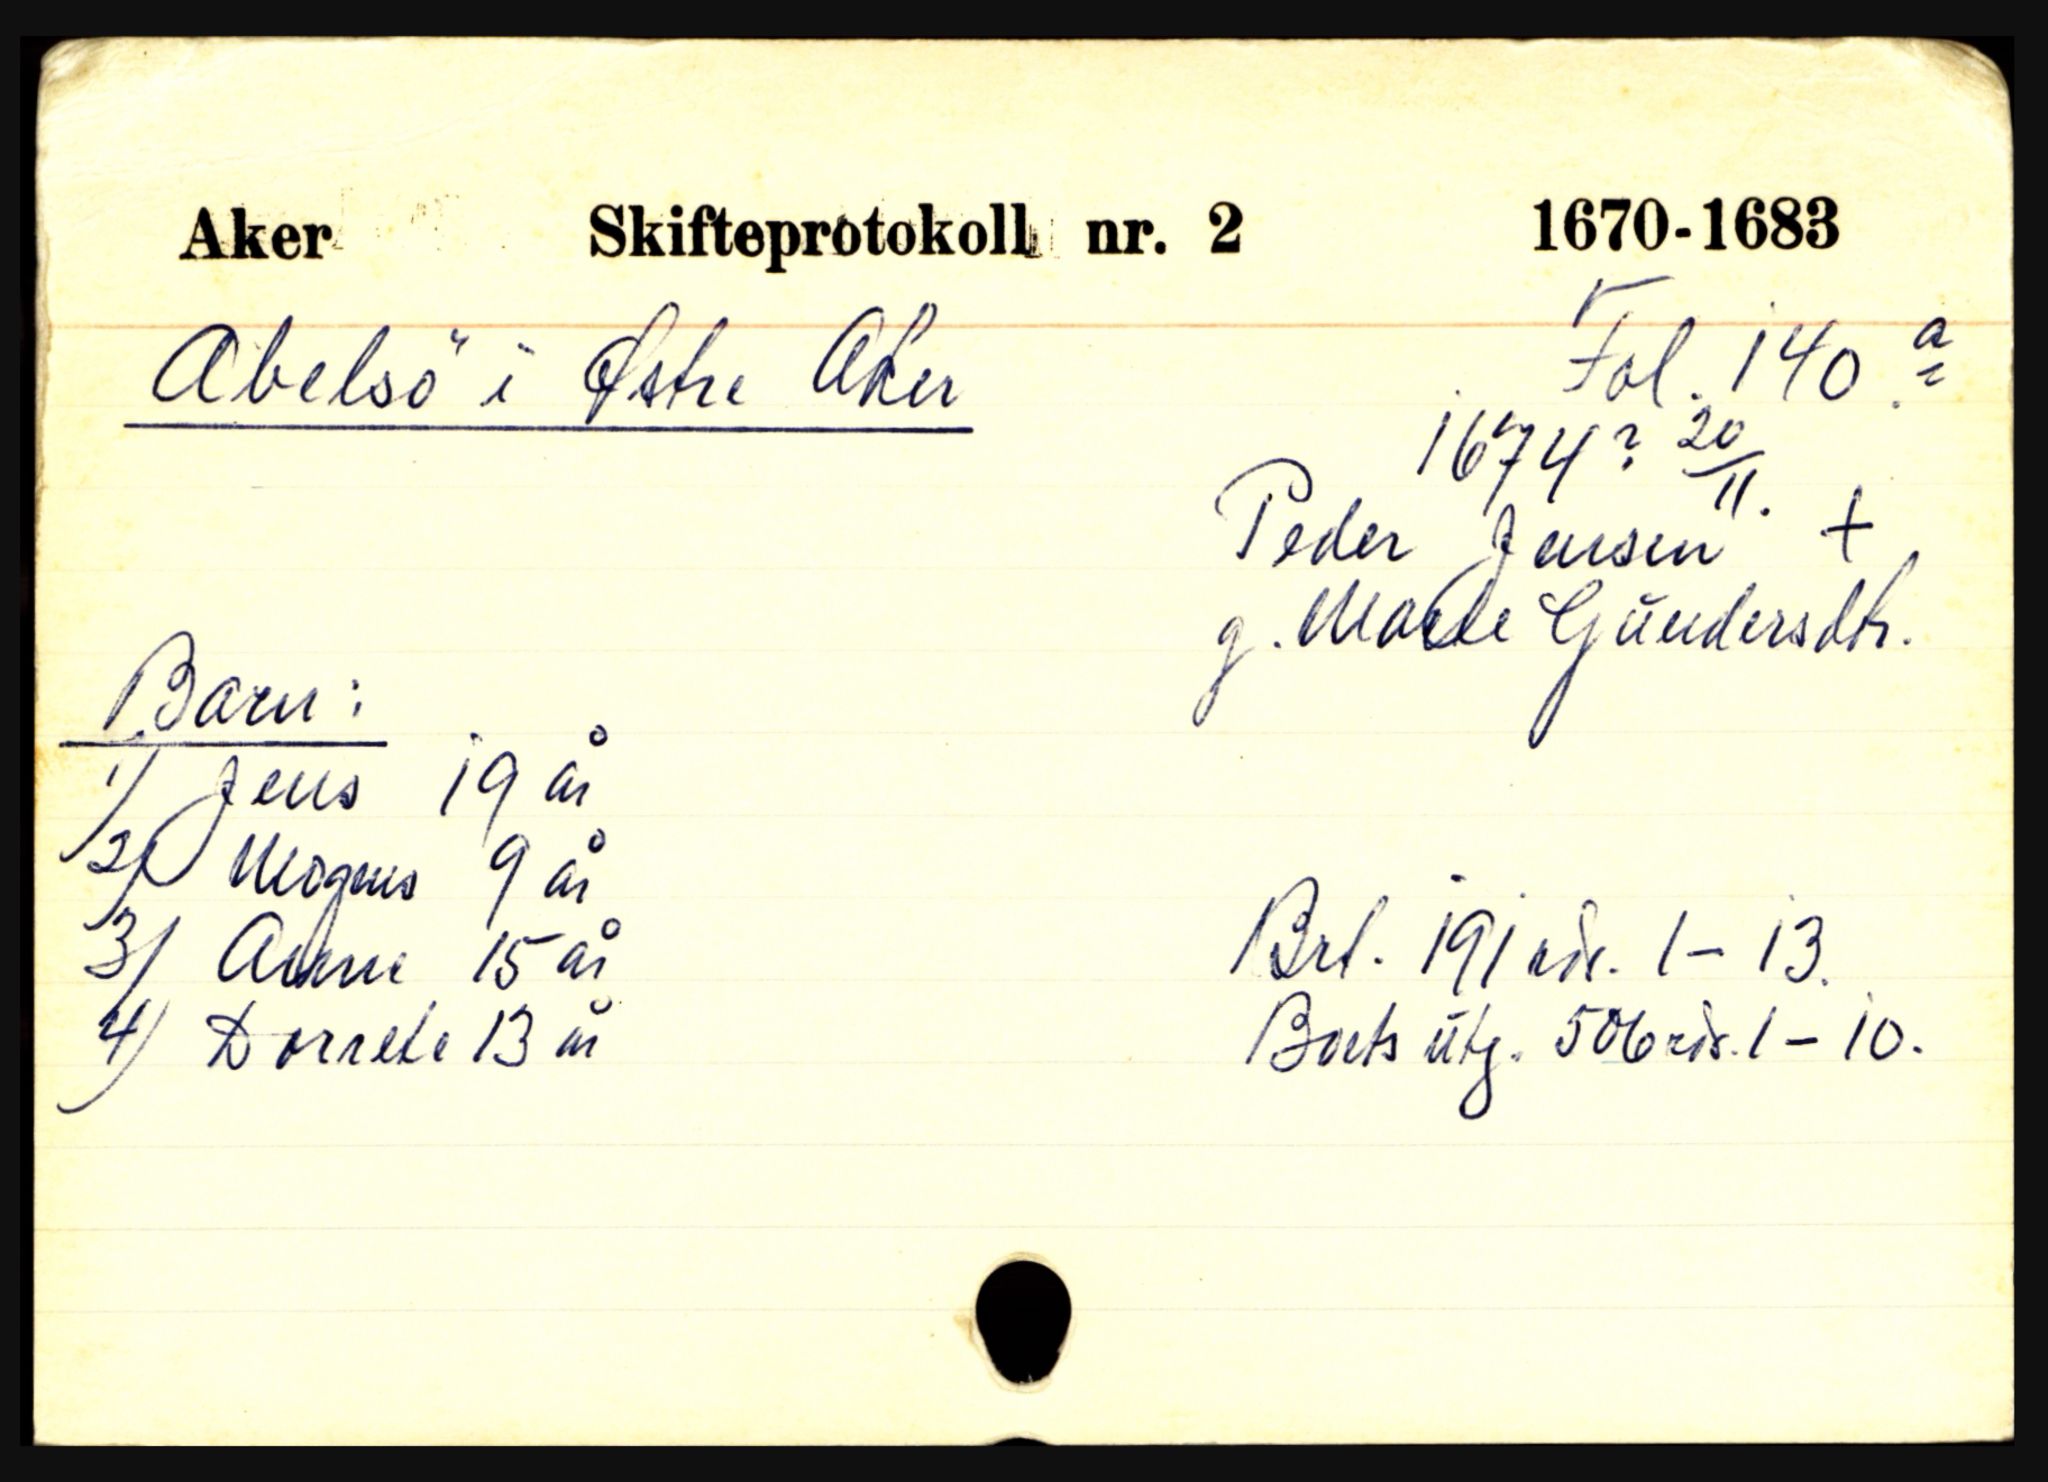 Aker Skifteprotokoll nr. 2 1670-1683
Abelsö i Østre Aker
Fol. 140 a
1674? 20/11.
Peder Jensen +
g. Marte Gundersdtr.
Barn:
1) Jens 19 år
2) Mogens 9 år
3) Anne 15 år
4) Dorrete 13 år
Brt. 191 rdr. 1 - 13.
Boets utg. 506 rdr. 1 - 10.